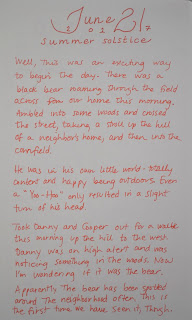 June 21
2 0 1 7
summer solstice
Well, This was an exciting way
to begin the day. There was a
black bear roaming through the field
across from our home this morning,
ambled into some woods and crossed
the street, taking a stroll up the hill
of a neighbor's home, and then into the
cornfield.
He was in his own little world - totally
content and happy being outdoors. Even
a "Yoo-Hoo" only resulted in a slight
turn of his head.
Took Danny and Cooper out for a walk
this morning up the hill to the west.
Danny was on high alert and was
noticing something in the woods. Now
I'm wondering if it was the bear.
Apparently the bear has been spotted
around the neighborhood often. This is
the first time we have seen it, though.